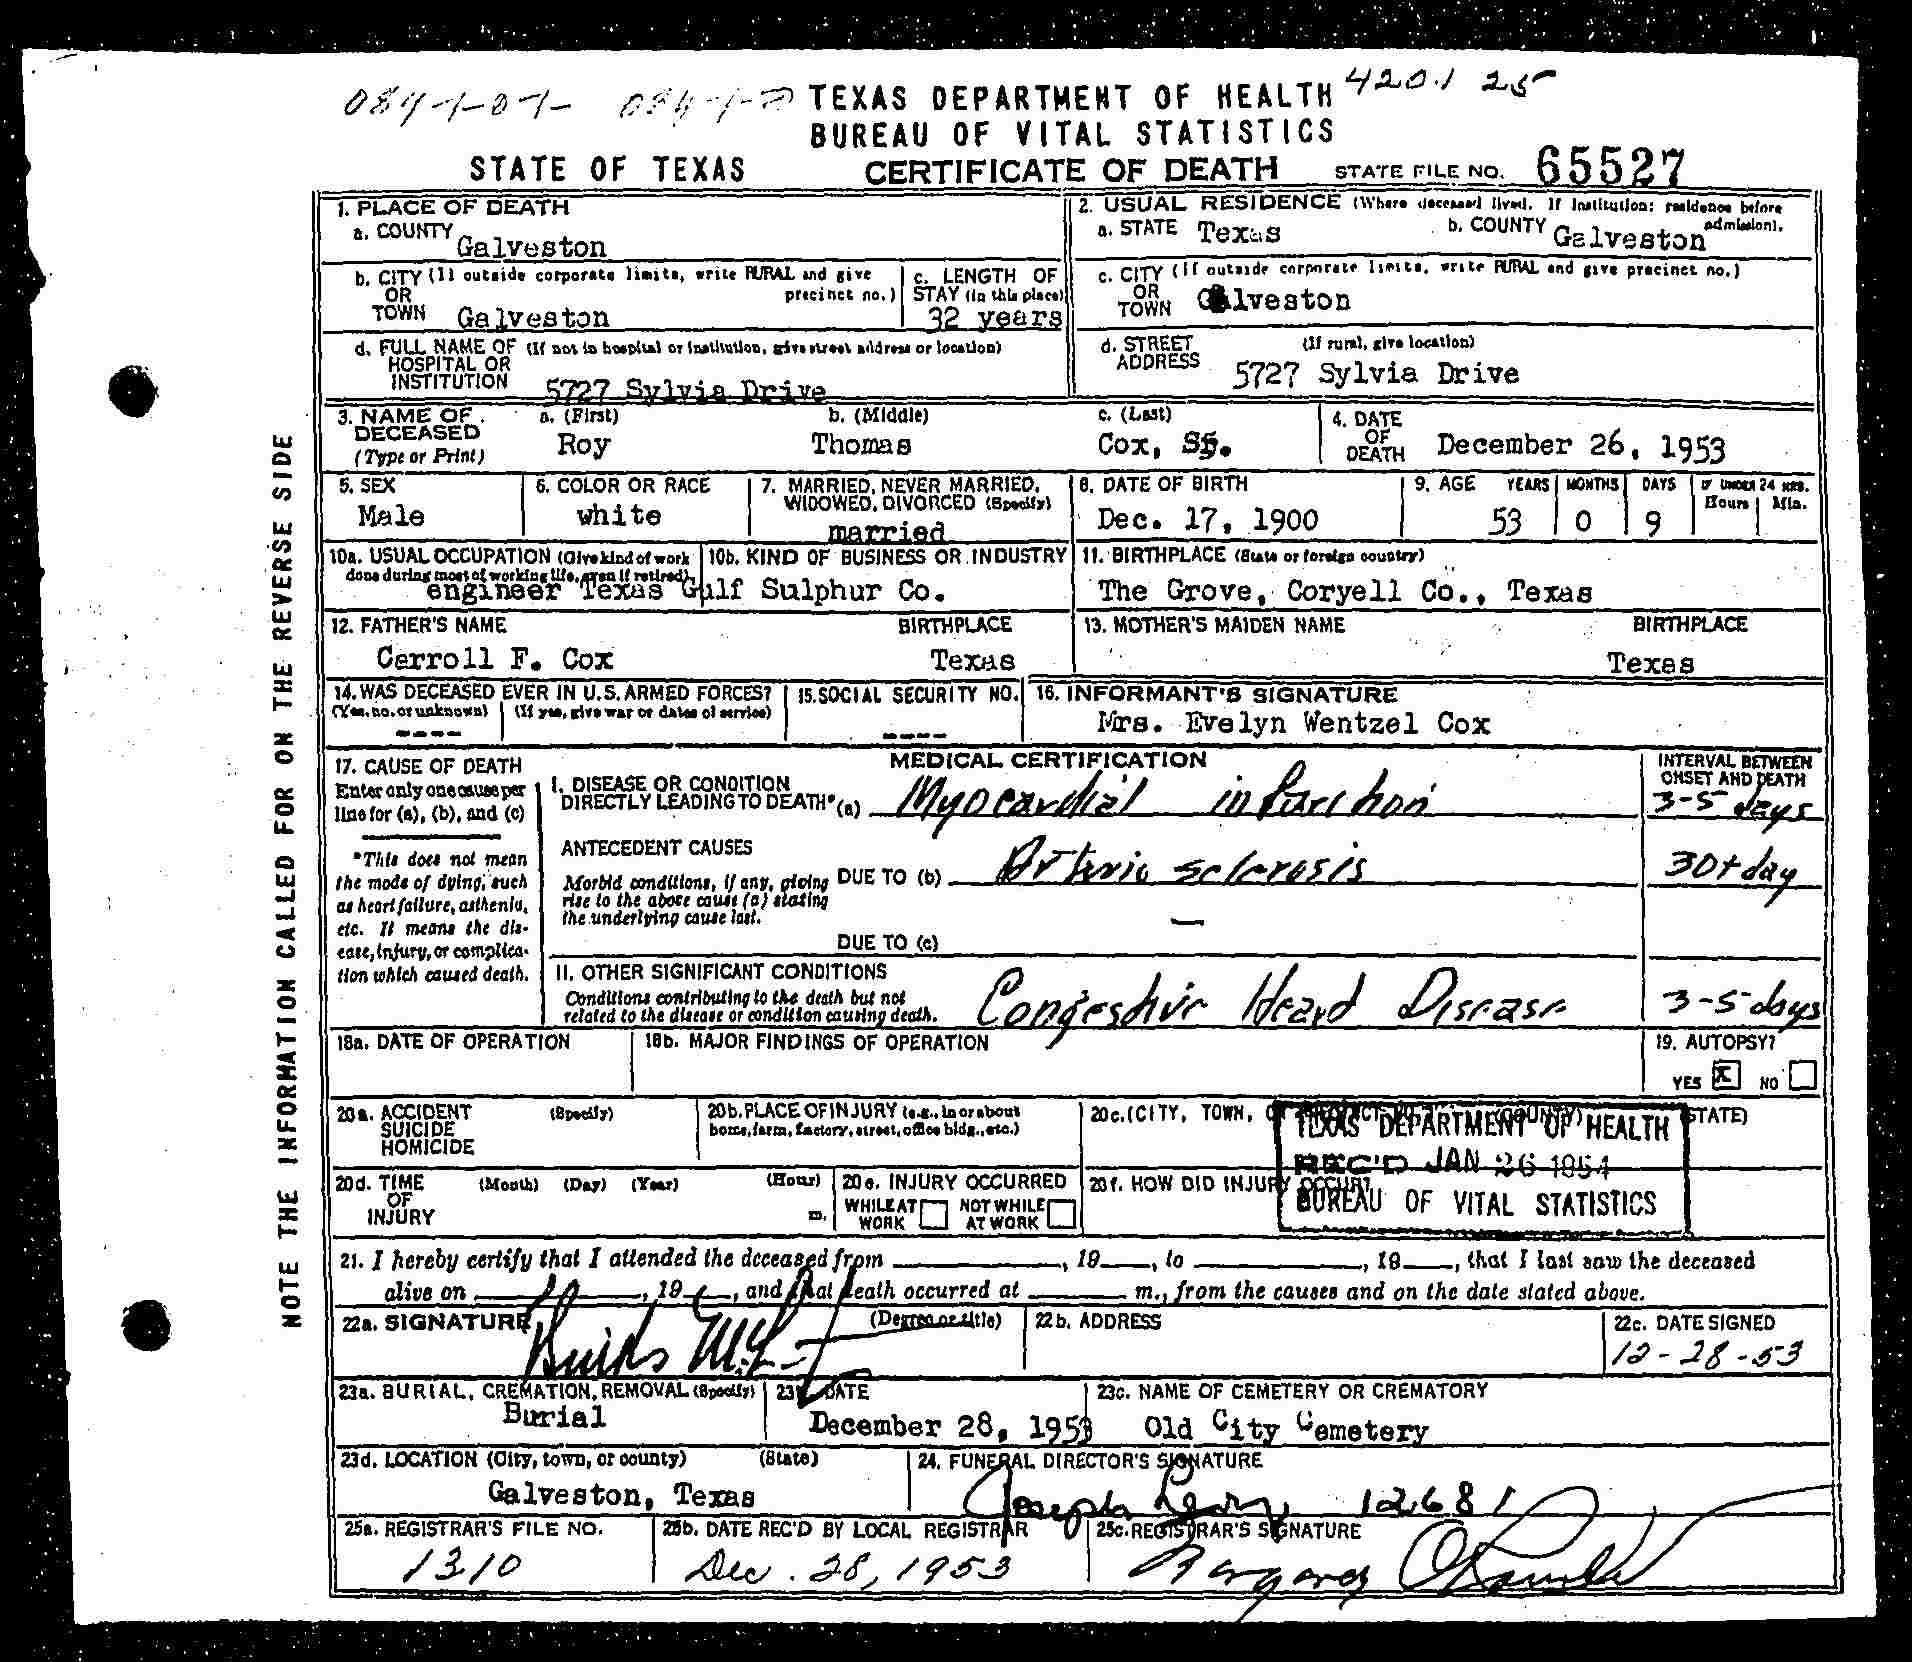 420.1 25
TEXAS DEPARTMENT OF HEALTH
BUREAU OF VITAL STATISTICS
STATE OF TEXAS CERTIFICATE OF DEATH STATE FILE NO. 65527
NOTE THE INFORMATION CALLED FOR ON THE REVERSE SIDE
1. PLACE OF DEATH
a. COUNTY
Galveston
2. USUAL RESIDENCE (Where deceased lived. If institution: residence before admission).
a. STATE Texas b. COUNTY Galveston
b. CITY (If outside corporate limits, write RURAL and give precinct no.)
OR
TOWN Galveston
c. LENGTH OF
STAY (in this place)
32 years
c. CITY (If outside corporate limits, write RURAL and give precinct no.)
OR
TOWN Galveston
d. FULL NAME OF (If not in hospital or institution, give street address or location)
HOSPITAL OR
INSTITUTION 5727 Sylvia Drive
d. STREET (If rural, give location)
ADDRESS 5727 Sylvia Drive
3. NAME OF DECEASED (Type or Print)
a. (First) b. (Middle) c. (Last)
Roy Thomas Cox, Sr.
4. DATE OF DEATH December 26, 1953
5. SEX
Male
6. COLOR OR RACE
white
7. MARRIED, NEVER MARRIED,
WIDOWED, DIVORCED (Specify)
married
8. DATE OF BIRTH
Dec. 17, 1900
9. AGE YEARS MONTHS DAYS IF UNDER 24 HRS.
Hours Min.
53 0 9
10a. USUAL OCCUPATION (Give kind of work
done during most of working life, even if retired)
10b. KIND OF BUSINESS OR INDUSTRY
engineer Texas Gulf Sulphur Co.
11. BIRTHPLACE (State or foreign country)
The Grove, Coryell Co., Texas
12. FATHER'S NAME BIRTHPLACE
Carroll F. Cox Texas
13. MOTHER'S MAIDEN NAME BIRTHPLACE
Texas
14. WAS DECEASED EVER IN U.S. ARMED FORCES?
(Yes, no, or unknown) (If yes, give war or dates of service)
----
15. SOCIAL SECURITY NO.
----
16. INFORMANT'S SIGNATURE
Mrs. Evelyn Wentzel Cox
MEDICAL CERTIFICATION
17. CAUSE OF DEATH
Enter only one cause per
line for (a), (b), and (c)
*This does not mean
the mode of dying, such
as heart failure, asthenia,
etc. It means the dis-
ease, injury, or complica-
tion which caused death.
INTERVAL BETWEEN
ONSET AND DEATH
I. DISEASE OR CONDITION
DIRECTLY LEADING TO DEATH* (a) Myocardial infarction 3-5 days
ANTECEDENT CAUSES
Morbid conditions, if any, giving
rise to the above cause (a) stating
the underlying cause last.
DUE TO (b) Arterio sclerosis 30+ day
—
DUE TO (c)
II. OTHER SIGNIFICANT CONDITIONS
Conditions contributing to the death but not
related to the disease or condition causing death.
Congestive Heard Disease 3-5 days
18a. DATE OF OPERATION
18b. MAJOR FINDINGS OF OPERATION
19. AUTOPSY?
YES X NO
20a. ACCIDENT (Specify)
SUICIDE
HOMICIDE
20b. PLACE OF INJURY (e.g., in or about
home, farm, factory, street, office bldg., etc.)
20c. (CITY, TOWN, OR PRECINCT NO.) (COUNTY) (STATE)
TEXAS DEPARTMENT OF HEALTH
REC'D JAN 26 1954
BUREAU OF VITAL STATISTICS
20d. TIME (Month) (Day) (Year) (Hour)
OF
INJURY m.
20e. INJURY OCCURRED
WHILE AT WORK NOT WHILE AT WORK
20f. HOW DID INJURY OCCUR?
21. I hereby certify that I attended the deceased from , 19 , to , 19 , that I last saw the deceased
alive on , 19 , and that death occurred at m., from the causes and on the date stated above.
22a. SIGNATURE (Degree or title)
22b. ADDRESS
22c. DATE SIGNED
12-28-53
23a. BURIAL, CREMATION, REMOVAL (Specify)
Burial
23b. DATE
December 28, 1953
23c. NAME OF CEMETERY OR CREMATORY
Old City Cemetery
23d. LOCATION (City, town, or county) (State)
Galveston, Texas
24. FUNERAL DIRECTOR'S SIGNATURE
Joseph Levy 12681
25a. REGISTRAR'S FILE NO.
1310
25b. DATE REC'D BY LOCAL REGISTRAR
Dec. 28, 1953
25c. REGISTRAR'S SIGNATURE